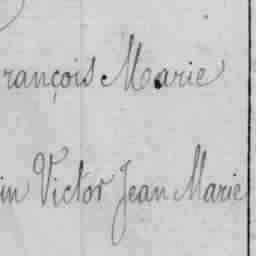 rançois Marie
in Victor Jean Marie